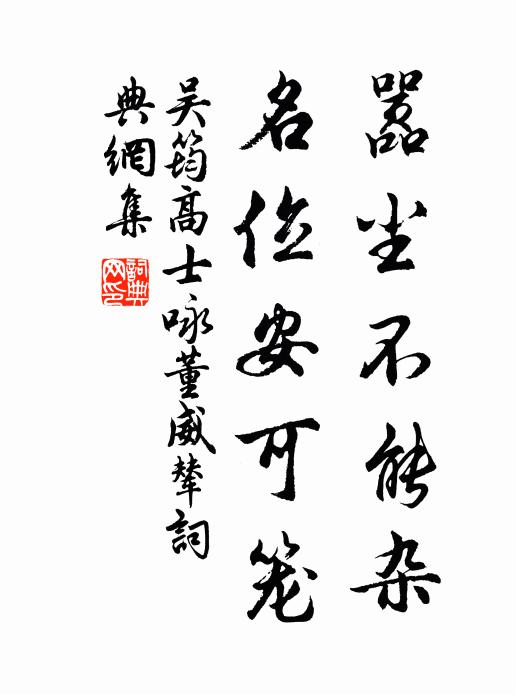 嚣尘不能杂
名位安可笼
吴筠高士咏董威辇詞
典網集
詞典网印